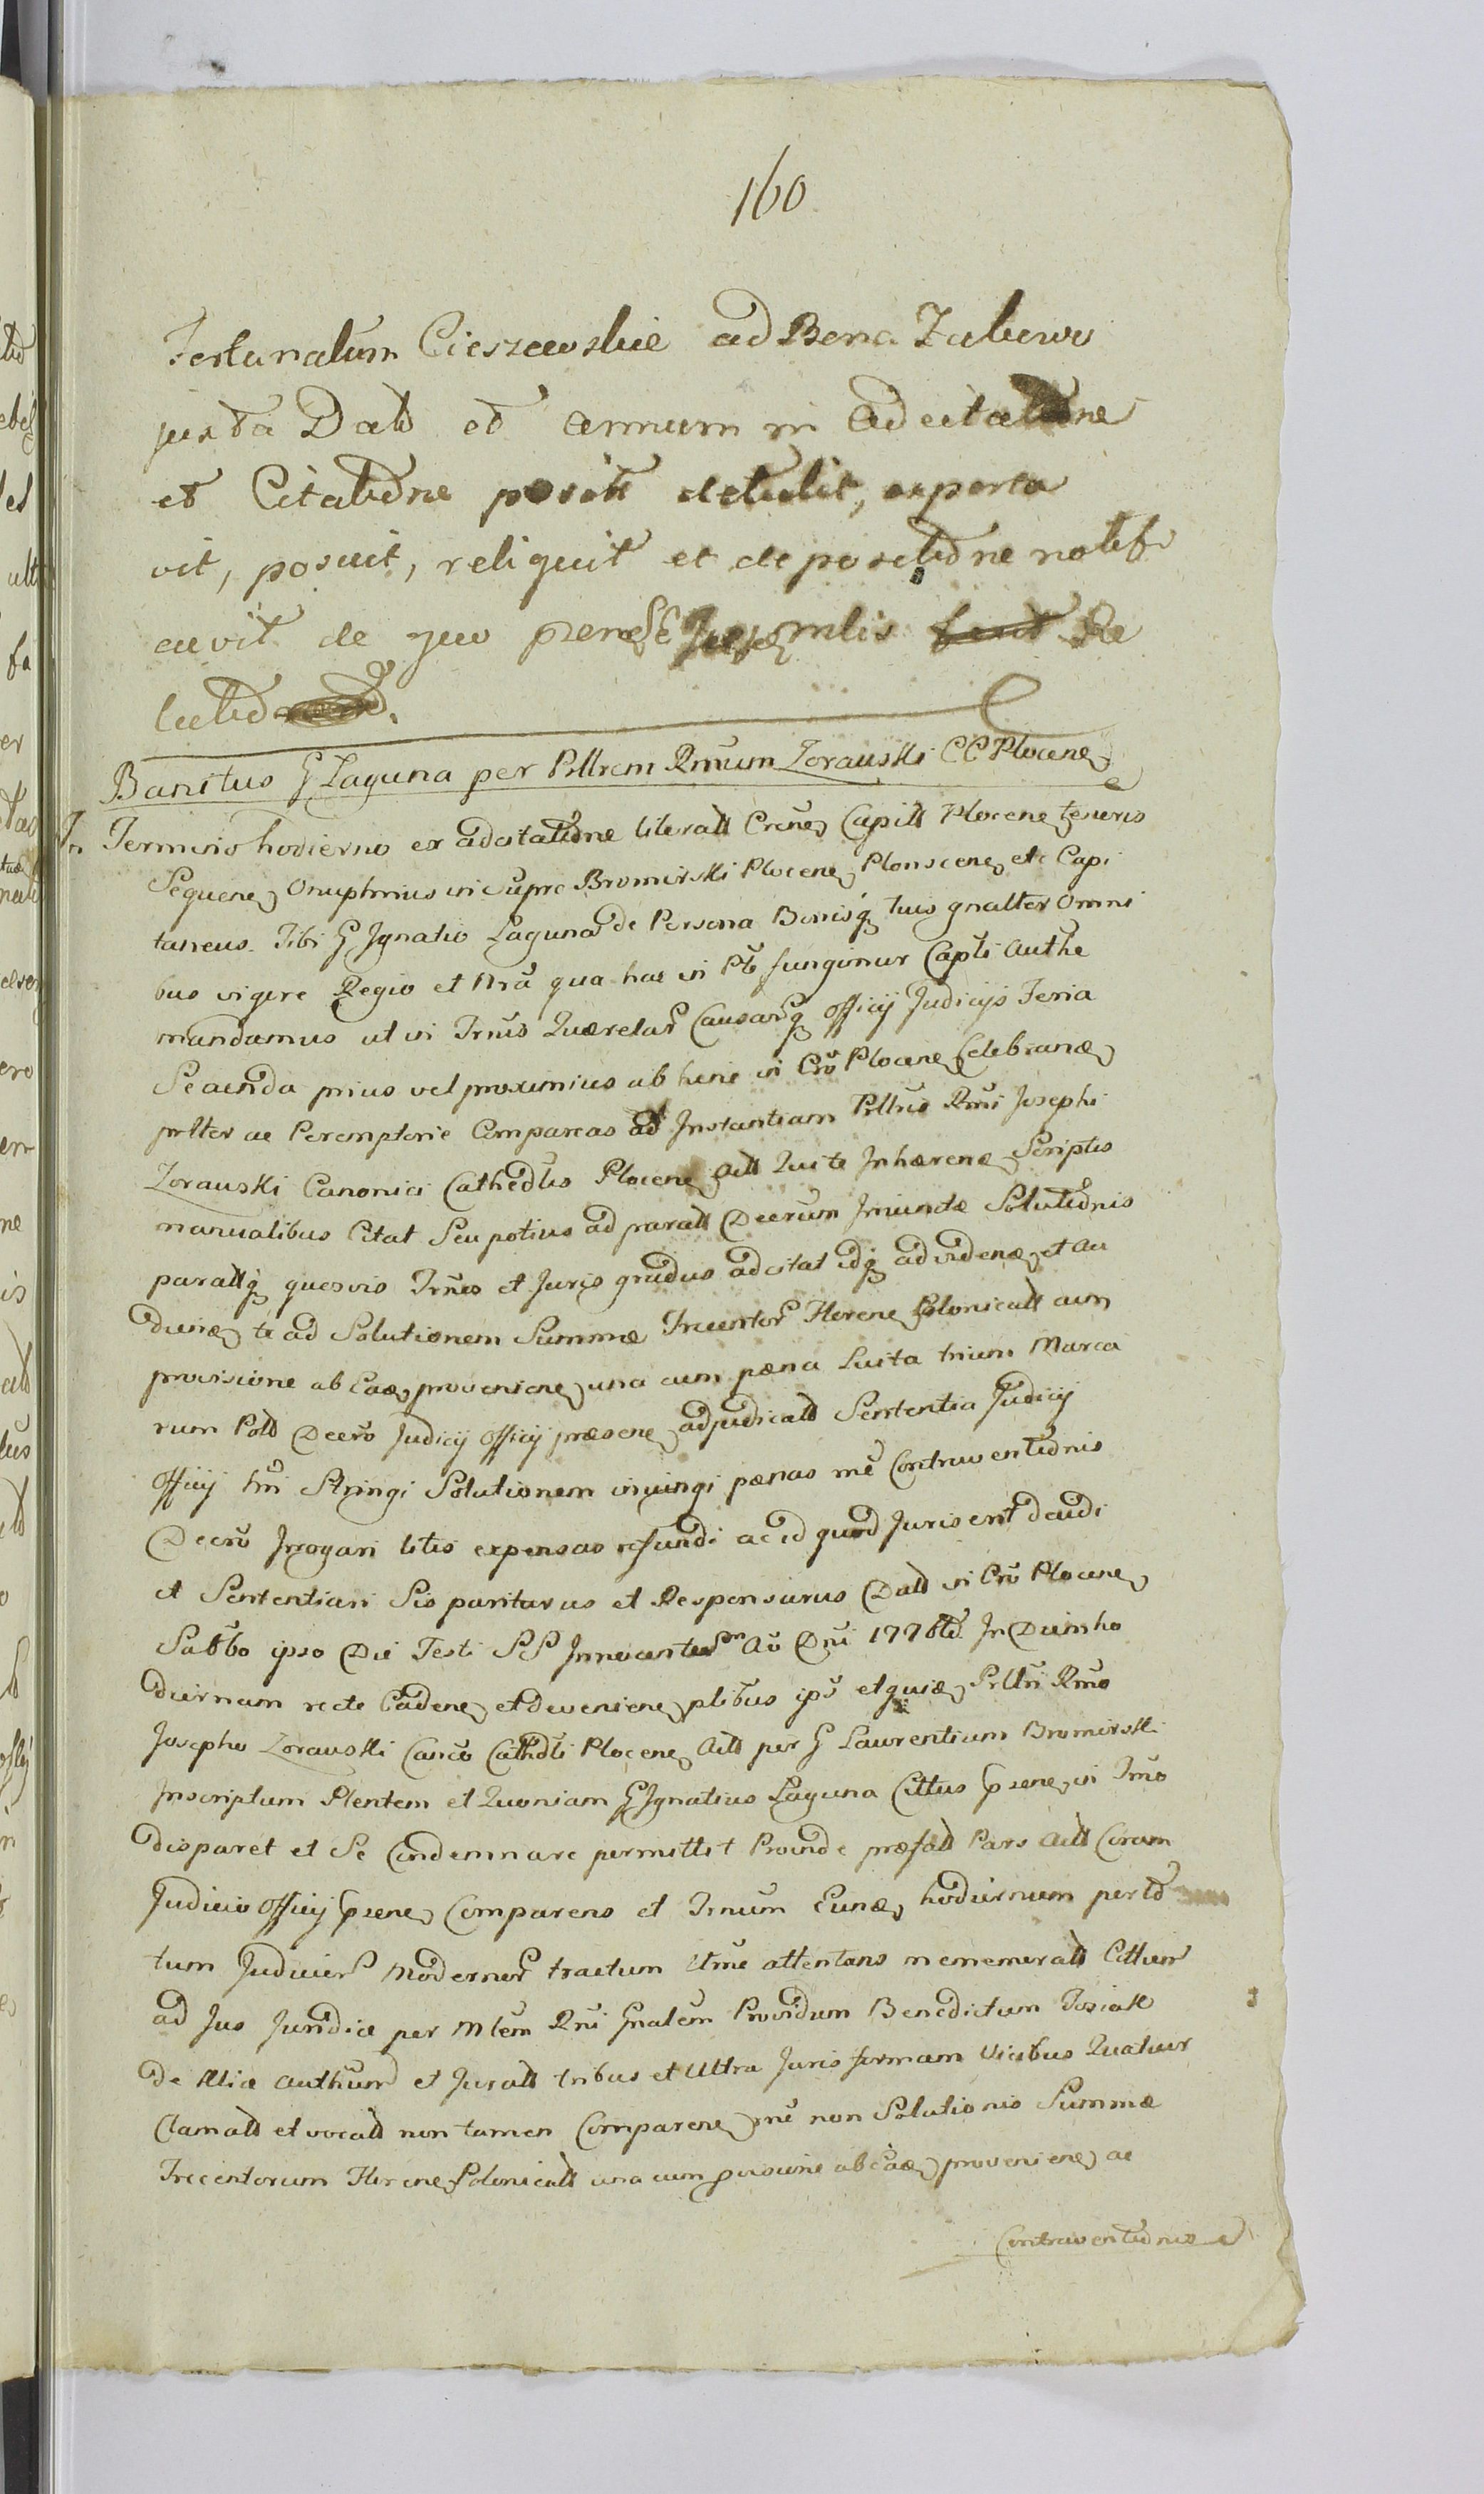 160
Fortunatum Cieszewskie ad Bona Zalewo
juxta Datt et annum in adcitatione
et Citatione posit detulit, reporta
vit, posuit, reliquit et de positione notifi
cavit de quo præns ministerialis Re
latio
Banitus G Laguna per Plltrem Rmum Zorawski CC Plocene
In Termino hodierno ex adcitatione literall Crene Capitt Plocene tenoris
Sequene Onuphrius in Supre Bromirski Plocene Plonscene etc Capi
taneus. Tibi G Ignatio Laguna de Persona Bonisq tuis gnalter Omni
bus vigore Regio et Nra qua hac in Pte fungimur Capli Authe
mandamus ut in Trnis Querelar Causarq Officij Judicijs Feria
Secunda prius vel proximius ab hinc in Cro Plocene Celebrane
prlter ac Peremptorie Compareas ad Instantiam Plltris Rmi Josephi
Zorauski Canonici Cathedlis Plocene Actt Qui te Inhærene Scriptis
manualibus Citat Seu potius ad paratt Decrum Iniunctæ Solutionis
parattq quosvis Trnos et Juris gradus adcitat idq ad videne et au
diene te ad Solutionem Summæ Trecentor Florene Polonicatt cum
provisione ab Eâe proveniene una cum pæna Luita trium Marca
rum Poll Decro Judicij Officij præsene adjudicatt Sententia Judicij
Officij hui Stringi Solutionem iniungi pænas rne Contraventionis
Decro Irrogari litis expensas refundi ac id quod Juris erit decidi
et Sententiari Sis pariturus et Responsurus Datt in Cro Plocene
Sabbo ipso Die Festi SS Innocentum Ao Dni 1778tio. In Diem ho
diernam recte Cadene et deveniene plibus ips et quiæ Plltri Rmo
Josepho Zorauski Canco Cathdli Plocene Actt per G Laurentium Bromirski
Inscriptum Plentem et Quoniam G Ignatius Laguna Cittus psene in Trno
disparet et Se Condemnare permittit Proinde præfatt Pars Actt Coram
Judicio Officij psene Comparens et Trnum Eune hodiernum per to
tum Judicior Modernor tractum Utme attentans memoratt Cittum
ad Jus Juridice per Mlem Rni Gnalem Providum Benedictum Josiak
De Alia Authum et Juratt tribus et Ultra Juris formam Vicibus Quatuor
Clamatt et vocatt non tamen Comparene rne non Solutionis Summæ
Trecentorum Florene Polonicatt una cum provisione ab Eâe proveniene ac
Contraventionis